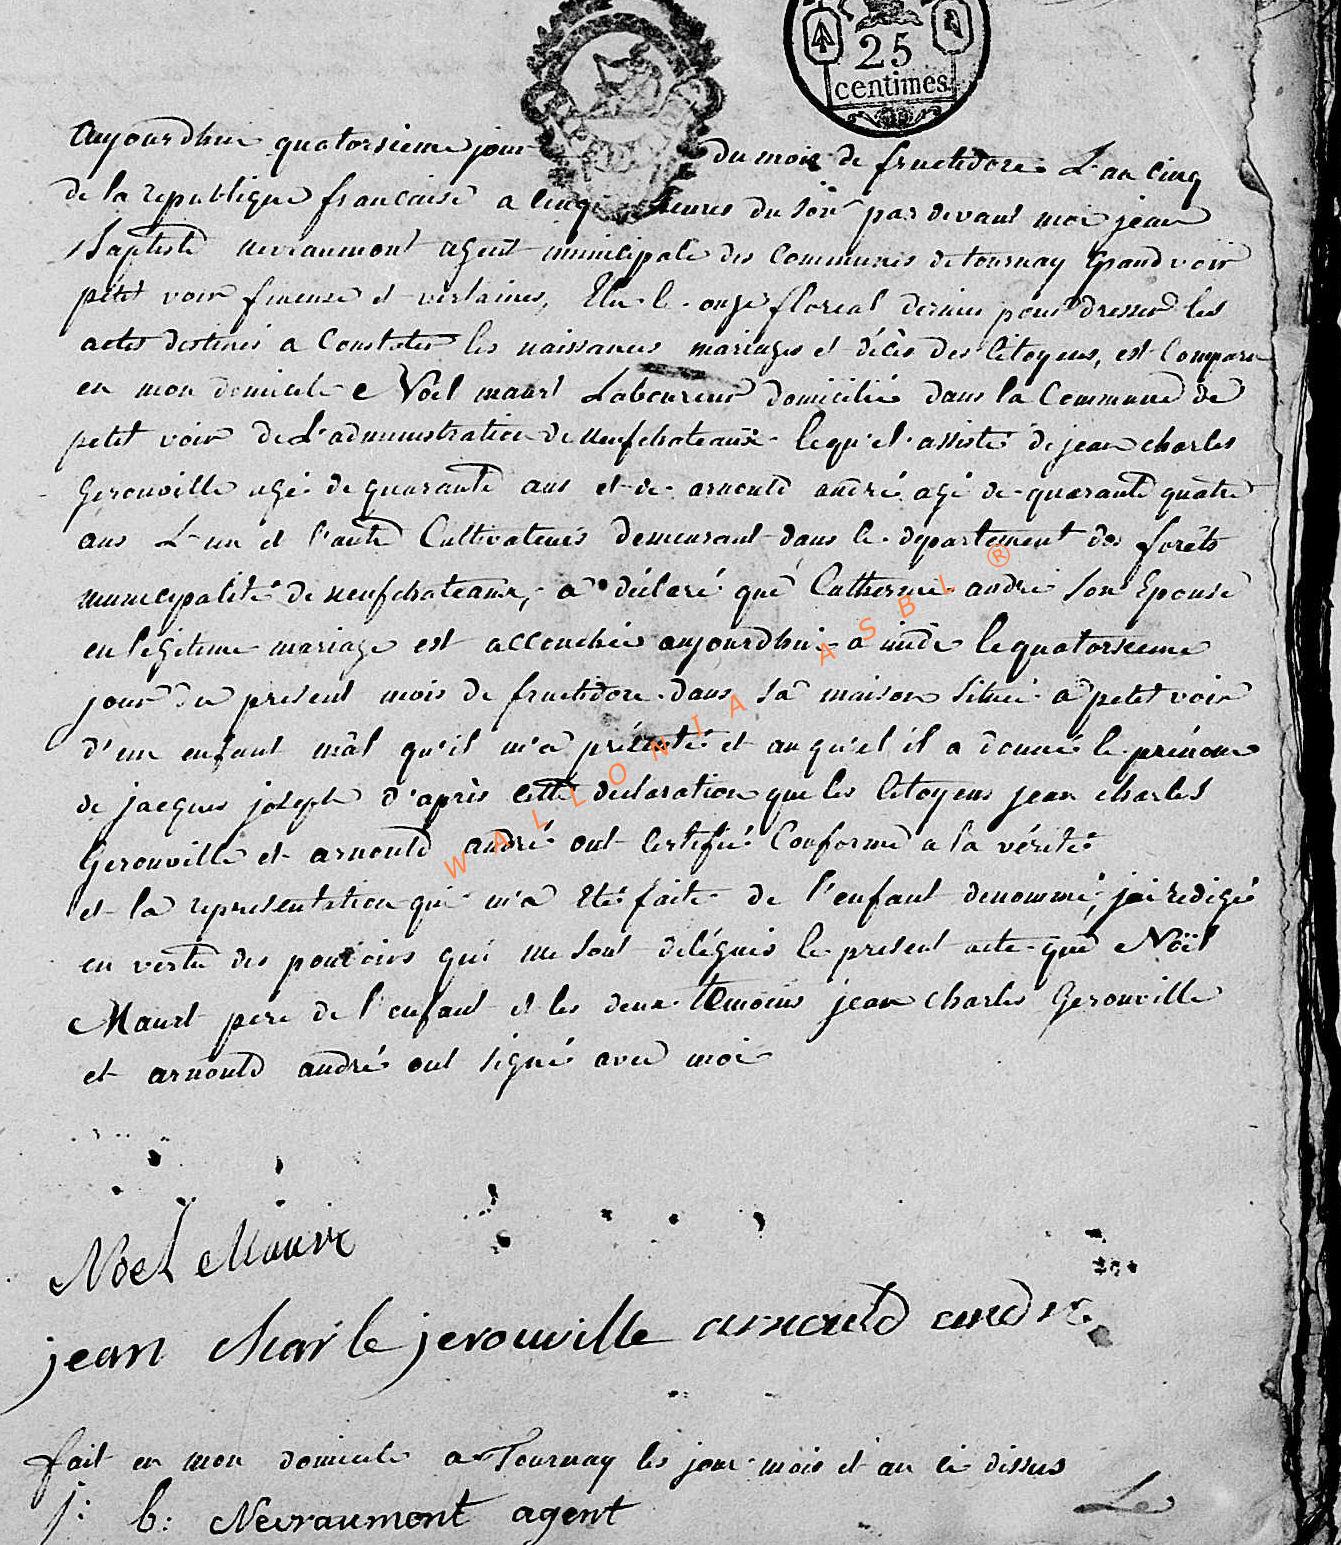 25
centimes
aujourdhui quatorsieme jour du mois de fructidore L'an cinq
de la republique francaise a cinq heures du soir pardevant moi jean
Baptiste nevraumont agent municipale des Communes de tournay Grandvoir
petit voir fineuse et verlaines, Elu le onze floreal dernier pour dresser les
actes destinés a Constater les naissances mariages et décès des Citoyens, est Comparu
en mon domicile Noël maurt Laboureur domicilié dans la Commune de
petit voir de L'administration de neufchateaux lequ'el assisté de jean charles
Gerouville agé de quarante ans et de arnould andré agé de quarante quatre
ans L'un et l'autre Cultivateurs demeurant dans le departement des forêts
municipalité de neufchateaux, a déclaré que Catherine andré son Epouse
en légitime mariage est accouchée aujourdhui a midi le quatorsieme
jour du present mois de fructidore dans sa maison située a petit voir
d'un enfant mâl qu'il m'a présenté et auqu'el il a donné le prénom
de jacques joseph d'après cette declaration que les Citoyens jean charles
Gerouville et arnould andré ont Certifié Conforme a la vérité
et la representation qui m'a été faite de l'enfant denommé, jai redigé
en vertu des pouvoirs qui me sont delégués le present acte que Noël
Maurt pere de l'enfant et les deux temoins jean charles Gerouville
et arnould andré ont signé avec moi
Noel Mauvx
jean charle jerouville arnould andre
fait en mon domicile a Tournay les jour mois et an ci dissus
j: b: Nevraumont agent
Le
WALLONIA ASBL ®